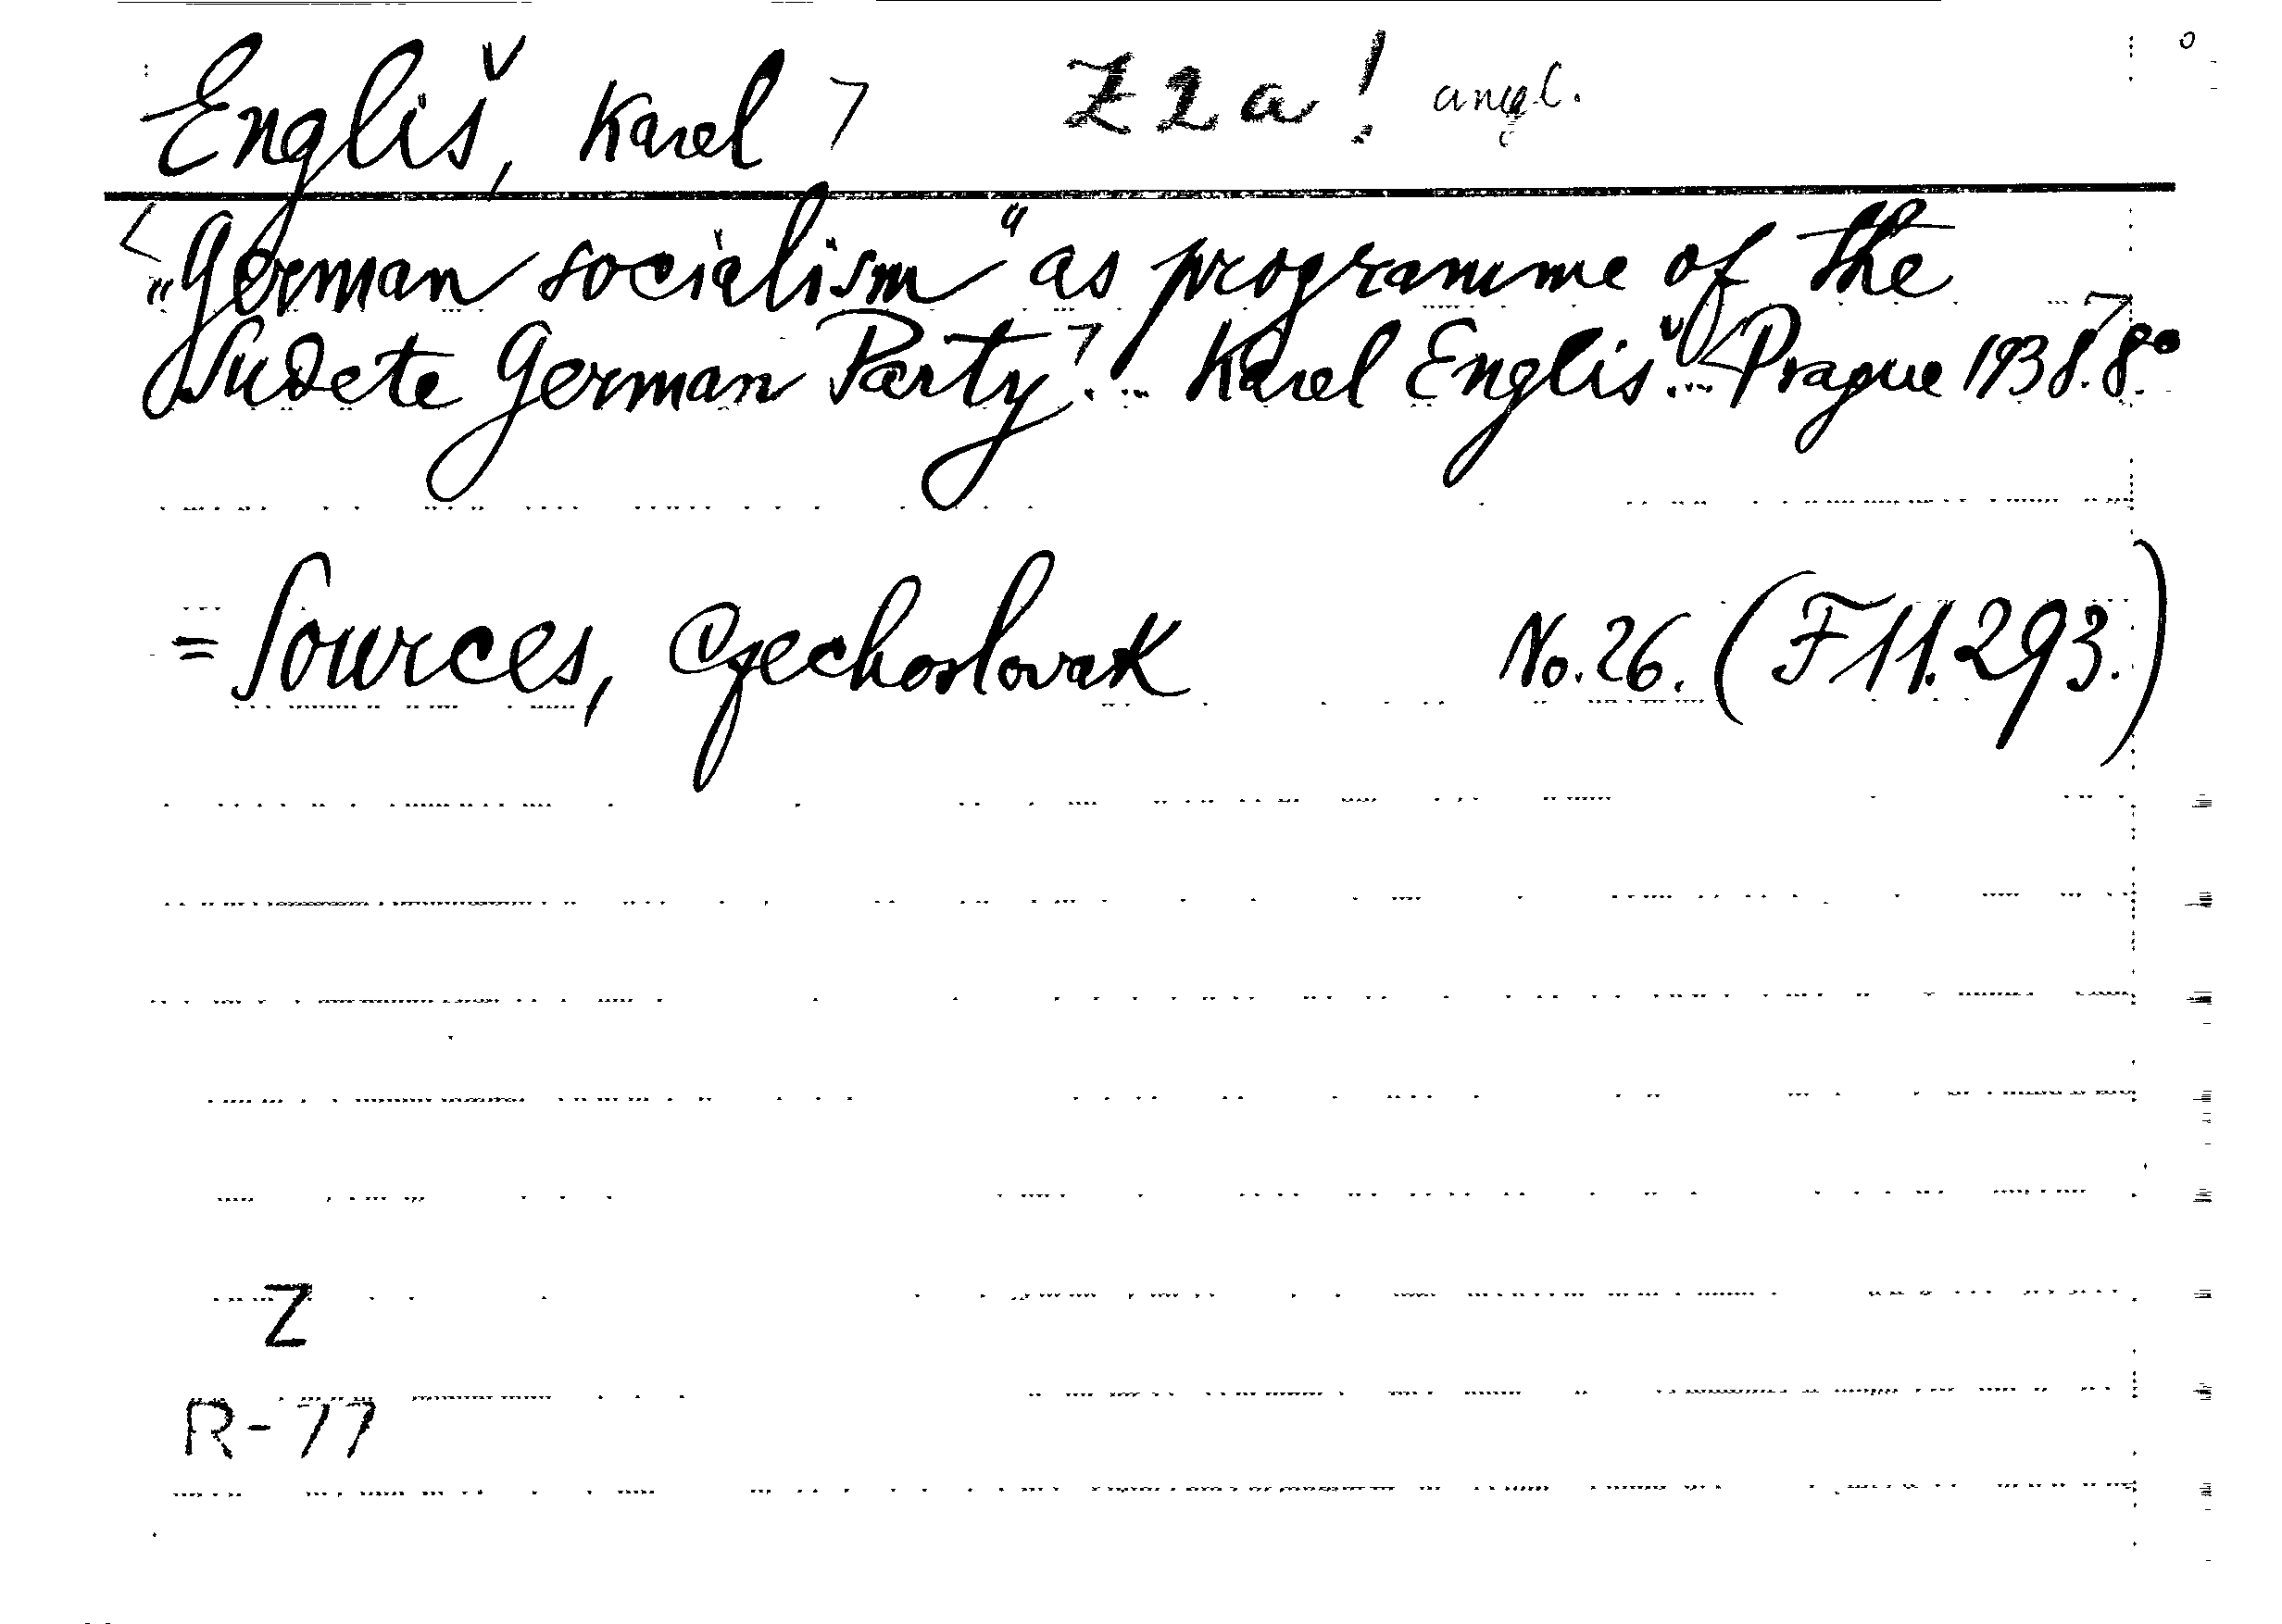 Engliš, Karel ꓶ Z 2 a ! angl.
<„German socialism“ as programme of the
Sudete German Party ꓶ.. Karel Engliš... <Prague 1938.ꓶ 8°
= Sources, Czechoslovak No. 26. (F 11.293.)
Z
R-77